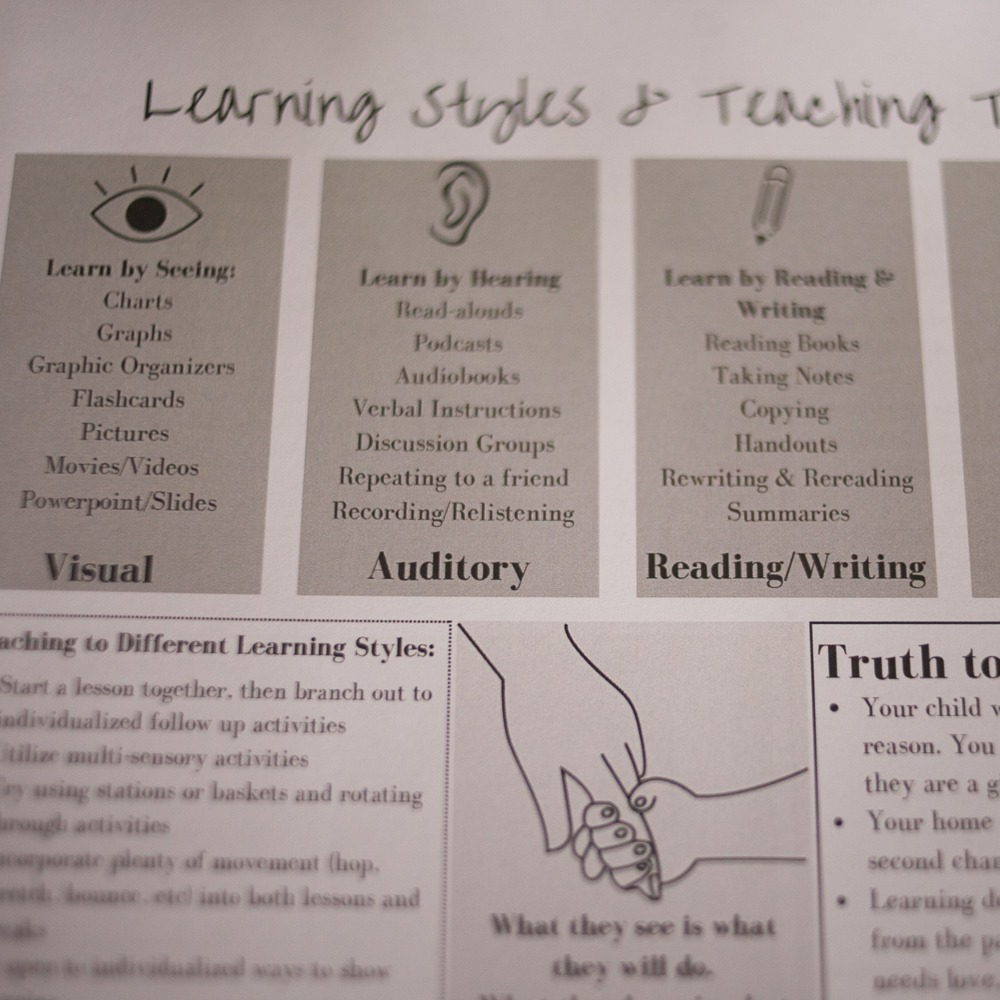 Learning Styles & Teaching T
Learn by Seeing:
Charts
Graphs
Graphic Organizers
Flashcards
Pictures
Movies/Videos
Powerpoint/Slides
Visual
Learn by Hearing
Read-alouds
Podcasts
Audiobooks
Verbal Instructions
Discussion Groups
Repeating to a friend
Recording/Relistening
Auditory
Learn by Reading &
Writing
Reading Books
Taking Notes
Copying
Handouts
Rewriting & Rereading
Summaries
Reading/Writing
aching to Different Learning Styles:
Start a lesson together, then branch out to
individualized follow up activities
tilize multi-sensory activities
ry using stations or baskets and rotating
hrough activities
ncorporate plenty of movement (hop,
bounce, etc) into both lessons and
open to individualized ways to show
What they see is what
they will do.
Truth to
• Your child w
reason. You
they are a g
• Your home
second chan
• Learning de
from the pa
needs love,